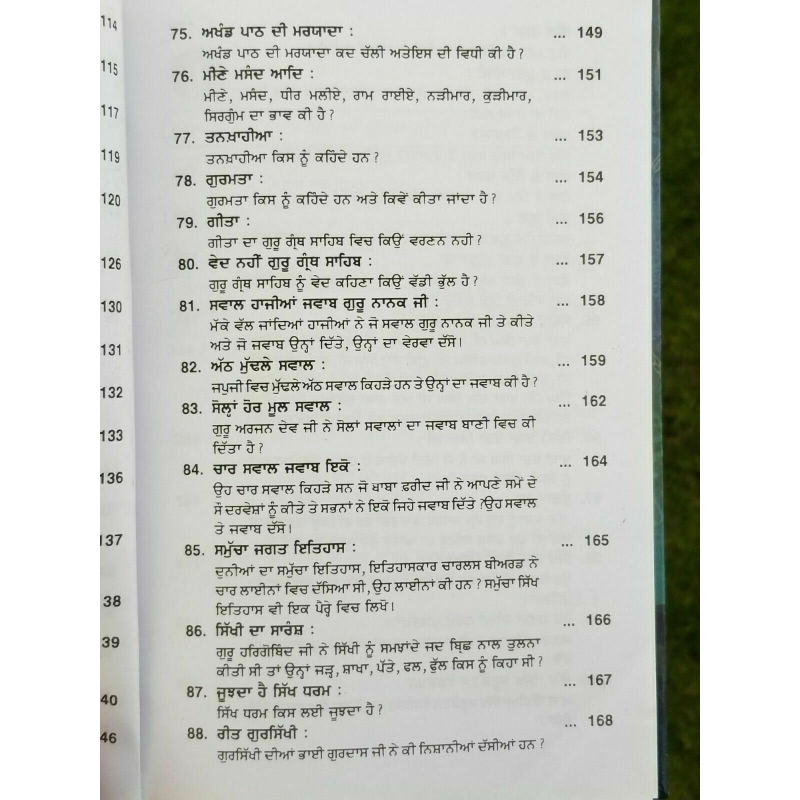 114
115
117
119
120
126
130
131
132
133
136
137
38
39
40
46
75. ਅਖੰਡ ਪਾਠ ਦੀ ਮਰਯਾਦਾ : ... 149
ਅਖੰਡ ਪਾਠ ਦੀ ਮਰਯਾਦਾ ਕਦ ਚੱਲੀ ਅਤੇਇਸ ਦੀ ਵਿਧੀ ਕੀ ਹੈ ?
76. ਮੀਣੇ ਮਸੰਦ ਆਦਿ : ... 151
ਮੀਣੇ, ਮਸੰਦ, ਧੀਰ ਮਲੀਏ, ਰਾਮ ਰਾਈਏ, ਨੜੀਮਾਰ, ਕੁੜੀਮਾਰ,
ਸਿਰਗੁੰਮ ਦਾ ਭਾਵ ਕੀ ਹੈ ?
77. ਤਨਖ਼ਾਹੀਆ : ... 153
ਤਨਖ਼ਾਹੀਆ ਕਿਸ ਨੂੰ ਕਹਿੰਦੇ ਹਨ ?
78. ਗੁਰਮਤਾ : ... 154
ਗੁਰਮਤਾ ਕਿਸ ਨੂੰ ਕਹਿੰਦੇ ਹਨ ਅਤੇ ਕਿਵੇਂ ਕੀਤਾ ਜਾਂਦਾ ਹੈ ?
79. ਗੀਤਾ : ... 156
ਗੀਤਾ ਦਾ ਗੁਰੂ ਗ੍ਰੰਥ ਸਾਹਿਬ ਵਿਚ ਕਿਉਂ ਵਰਣਨ ਨਹੀ ?
80. ਵੇਦ ਨਹੀਂ ਗੁਰੂ ਗ੍ਰੰਥ ਸਾਹਿਬ : ... 157
ਗੁਰੂ ਗ੍ਰੰਥ ਸਾਹਿਬ ਨੂੰ ਵੇਦ ਕਹਿਣਾ ਕਿਉਂ ਵੱਡੀ ਭੁੱਲ ਹੈ ?
81. ਸਵਾਲ ਹਾਜੀਆਂ ਜਵਾਬ ਗੁਰੂ ਨਾਨਕ ਜੀ : ... 158
ਮੱਕੇ ਵੱਲ ਜਾਂਦਿਆਂ ਹਾਜੀਆਂ ਨੇ ਜੋ ਸਵਾਲ ਗੁਰੂ ਨਾਨਕ ਜੀ ਤੇ ਕੀਤੇ
ਅਤੇ ਜੋ ਜਵਾਬ ਉਨ੍ਹਾਂ ਦਿੱਤੇ, ਉਨ੍ਹਾਂ ਦਾ ਵੇਰਵਾ ਦੱਸੋ।
82. ਅੱਠ ਮੁੱਢਲੇ ਸਵਾਲ : ... 159
ਜਪੁਜੀ ਵਿਚ ਮੁੱਢਲੇ ਅੱਠ ਸਵਾਲ ਕਿਹੜੇ ਹਨ ਤੇ ਉਨ੍ਹਾਂ ਦਾ ਜਵਾਬ ਕੀ ਹੈ ?
83. ਸੋਲ੍ਹਾਂ ਹੋਰ ਮੂਲ ਸਵਾਲ : ... 162
ਗੁਰੂ ਅਰਜਨ ਦੇਵ ਜੀ ਨੇ ਸੋਲਾਂ ਸਵਾਲਾਂ ਦਾ ਜਵਾਬ ਬਾਣੀ ਵਿਚ ਕੀ
ਦਿੱਤਾ ਹੈ ?
84. ਚਾਰ ਸਵਾਲ ਜਵਾਬ ਇਕੋ : ... 164
ਉਹ ਚਾਰ ਸਵਾਲ ਕਿਹੜੇ ਸਨ ਜੋ ਖ਼ਾਬਾ ਫ਼ਰੀਦ ਜੀ ਨੇ ਆਪਣੇ ਸਮੇਂ ਦੇ
ਸੌ ਦਰਵੇਸ਼ਾਂ ਨੂੰ ਕੀਤੇ ਤੇ ਸਭਨਾਂ ਨੇ ਇਕੋ ਜਿਹੇ ਜਵਾਬ ਦਿੱਤੇ ?ਉਹ ਸਵਾਲ
ਤੇ ਜਵਾਬ ਦੱਸੋ।
85. ਸਮੁੱਚਾ ਜਗਤ ਇਤਿਹਾਸ : ... 165
ਦੁਨੀਆਂ ਦਾ ਸਮੁੱਚਾ ਇਤਿਹਾਸ, ਇਤਿਹਾਸਕਾਰ ਚਾਰਲਸ ਬੀਅਰਡ ਨੇ
ਚਾਰ ਲਾਈਨਾਂ ਵਿਚ ਦੱਸਿਆ ਸੀ, ਉਹ ਲਾਈਨਾਂ ਕੀ ਹਨ ? ਸਮੁੱਚਾ ਸਿੱਖ
ਇਤਿਹਾਸ ਵੀ ਇਕ ਪੈਰ੍ਹੇ ਵਿਚ ਲਿਖੋ।
86. ਸਿੱਖੀ ਦਾ ਸਾਰੰਸ਼ : ... 166
ਗੁਰੂ ਹਰਿਗੋਬਿੰਦ ਜੀ ਨੇ ਸਿੱਖੀ ਨੂੰ ਸਮਝਾਂਦੇ ਜਦ ਬ੍ਰਿਛ ਨਾਲ ਤੁਲਨਾ
ਕੀਤੀ ਸੀ ਤਾਂ ਉਨ੍ਹਾਂ ਜੜ੍ਹ, ਸ਼ਾਖਾ, ਪੱਤੇ, ਫਲ, ਫੁੱਲ ਕਿਸ ਨੂੰ ਕਿਹਾ ਸੀ ?
87. ਜੂਝਦਾ ਹੈ ਸਿੱਖ ਧਰਮ : ... 167
ਸਿੱਖ ਧਰਮ ਕਿਸ ਲਈ ਜੂਝਦਾ ਹੈ ?
88. ਰੀਤ ਗੁਰਸਿੱਖੀ : ... 168
ਗੁਰਸਿੱਖੀ ਦੀਆਂ ਭਾਈ ਗੁਰਦਾਸ ਜੀ ਨੇ ਕੀ ਨਿਸ਼ਾਨੀਆਂ ਦੱਸੀਆਂ ਹਨ ?